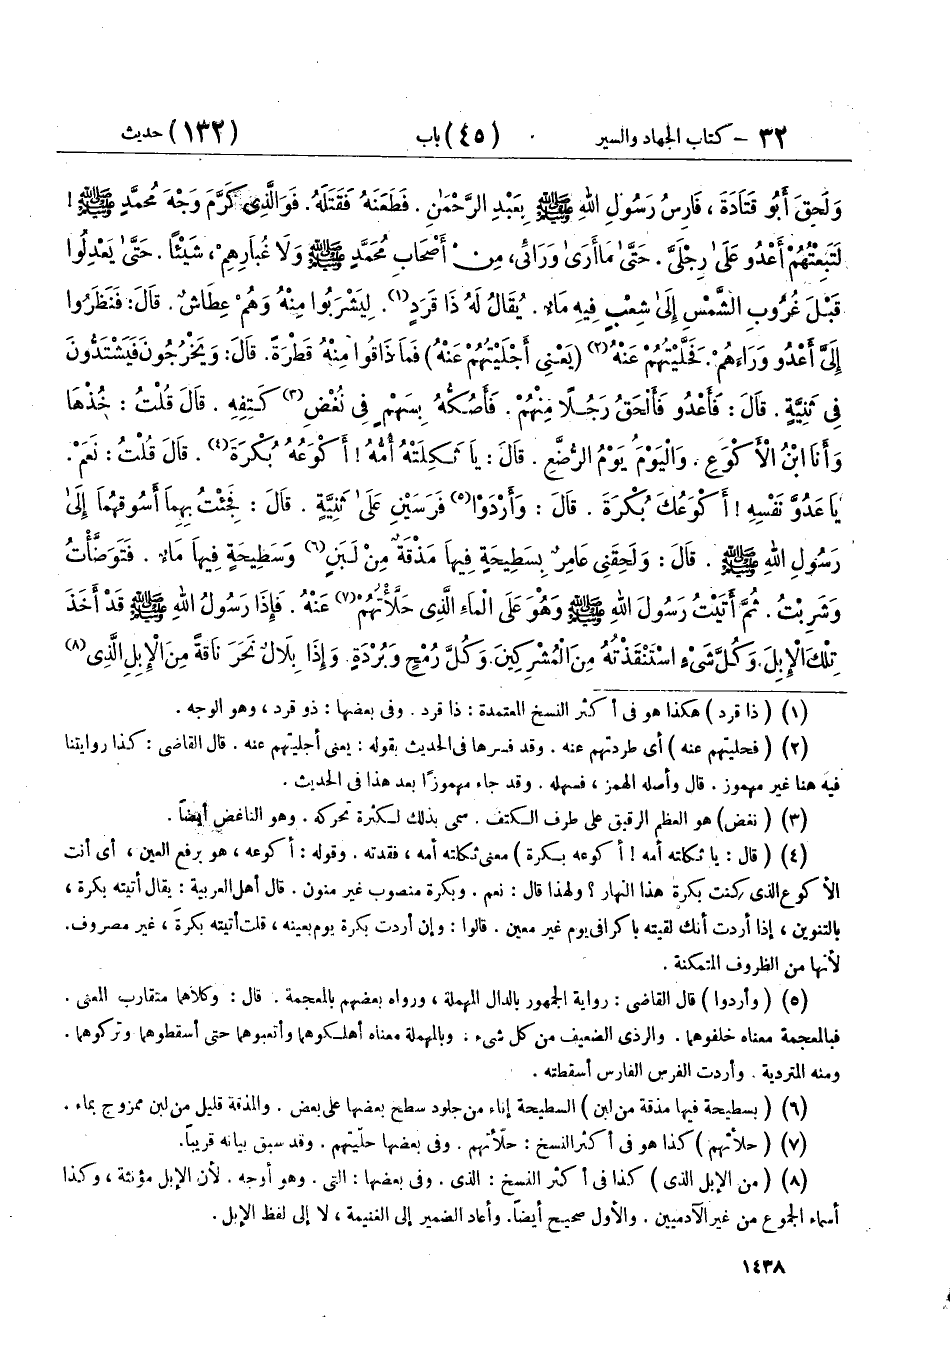 ٣٢ - كتاب الجهاد والسير (٤٥) باب (١٣٢) حديث
وَلَحِقَ أَبُو قَتَادَةَ ، فَارِسُ رَسُولِ اللهِ ﷺ بِعَبْدِ الرَّحْمٰنِ . فَطَعَنَهُ فَقَتَلَهُ . فَوَالَّذِي كَرَّمَ وَجْهَ مُحَمَّدٍ ﷺ !
لَتَبِعْتُهُمْ أَعْدُو عَلَىٰ رِجْلَيَّ . حَتَّىٰ مَا أَرَىٰ وَرَائِي، مِنْ أَصْحَابِ مُحَمَّدٍ ﷺ وَلَا غُبَارِهِمْ، شَيْئًا . حَتَّىٰ يَعْدِلُوا
قَبْلَ غُرُوبِ الشَّمْسِ إِلَىٰ شِعْبٍ فِيهِ مَاءٌ . يُقَالُ لَهُ ذَا قَرَدٍ (١) . لِيَشْرَبُوا مِنْهُ وَهُمْ عِطَاشٌ . قَالَ: فَنَظَرُوا
إِلَيَّ أَعْدُو وَرَاءَهُمْ. فَحَلَّيْتُهُمْ عَنْهُ (٢) (يَعْنِي أَجْلَيْتُهُمْ عَنْهُ) فَمَا ذَاقُوا مِنْهُ قَطْرَةً. قَالَ: وَيَخْرُجُونَ فَيَشْتَدُّونَ
فِي ثَنِيَّةٍ . قَالَ : فَأَعْدُو فَأَلْحَقُ رَجُلًا مِنْهُمْ . فَأَصُكُّهُ بِسَهْمٍ فِي نُغْضِ (٣) كَتِفِهِ . قَالَ قُلْتُ : خُذْهَا
وَأَنَا ابْنُ الْأَكْوَعِ . وَالْيَوْمُ يَوْمُ الرُّضَّعِ . قَالَ : يَا ثَكِلَتْهُ أُمُّهُ ! أَكْوَعُهُ بُكْرَةَ (٤) . قَالَ قُلْتُ : نَعَمْ .
يَا عَدُوَّ نَفْسِهِ ! أَكْوَعُكَ بُكْرَةَ . قَالَ : وَأَرْدَوْا (٥) فَرَسَيْنِ عَلَىٰ ثَنِيَّةٍ . قَالَ : فَجِئْتُ بِهِمَا أَسُوقُهُمَا إِلَىٰ
رَسُولِ اللهِ ﷺ . قَالَ : وَلَحِقَنِي عَامِرٌ بِسَطِيحَةٍ فِيهَا مَذْقَةٌ مِنْ لَبَنٍ (٦) وَسَطِيحَةٍ فِيهَا مَاءٌ . فَتَوَضَّأْتُ
وَشَرِبْتُ . ثُمَّ أَتَيْتُ رَسُولَ اللهِ ﷺ وَهُوَ عَلَى الْمَاءِ الَّذِي حَلَّأْتُهُمْ (٧) عَنْهُ . فَإِذَا رَسُولُ اللهِ ﷺ قَدْ أَخَذَ
تِلْكَ الْإِبِلَ. وَكُلَّ شَيْءٍ اسْتَنْقَذْتُهُ مِنَ الْمُشْرِكِينَ. وَكُلَّ رُمْحٍ وَبُرْدَةٍ. وَإِذَا بِلَالٌ نَحَرَ نَاقَةً مِنَ الْإِبِلِ الَّذِي (٨)
(١) ( ذا قرد ) هكذا هو في أكثر النسخ المعتمدة : ذا قرد . وفي بعضها : ذو قرد ، وهو الوجه .
(٢) ( فحليتهم عنه ) أي طردتهم عنه . وقد فسرها في الحديث بقوله : يعني أجليتهم عنه . قال القاضي : كذا روايتنا
فيه هنا غير مهموز . قال وأصله الهمز ، فسهله . وقد جاء مهموزًا بعد هذا في الحديث .
(٣) ( نغض) هو العظم الرقيق على طرف الكتف . سمى بذلك لكثرة تحركه . وهو الناغض أيضاً .
(٤) ( قال : يا ثكلته أمه ! أكوعه بكرة ) معنى ثكلته أمه ، فقدته . وقوله : أكوعه ، هو برفع العين ، أي أنت
الأكوع الذي كنت بكرة هذا النهار ؟ ولهذا قال : نعم . وبكرة منصوب غير منون . قال أهل العربية : يقال أتيته بكرة ،
بالتنوين ، إذا أردت أنك لقيته باكراً في يوم غير معين . قالوا : وإن أردت بكرة يوم بعينه ، قلت أتيته بكرةَ ، غير مصروف.
لأنها من الظروف المتمكنة .
(٥) ( وأردوا ) قال القاضي : رواية الجمهور بالدال المهملة ، ورواه بعضهم بالمعجمة . قال : وكلاهما متقارب المعنى .
فبالمعجمة معناه خلفوهما . والرذى الضعيف من كل شيء ؛ وبالمهملة معناه أهلكوهما وأتعبوهما حتى أسقطوهما وتركوهما .
ومنه المتردية . وأردت الفرس الفارس أسقطته .
(٦) ( بسطيحة فيها مذقة من لبن ) السطيحة إناء من جلود سطح بعضها على بعض . والمذقة قليل من لبن ممزوج بماء .
(٧) ( حلأتهم ) كذا هو في أكثر النسخ : حلّأتهم . وفي بعضها حلّيتهم . وقد سبق بيانه قريباً.
(٨) ( من الإبل الذي ) كذا في أكثر النسخ : الذي . وفي بعضها : التي . وهو أوجه . لأن الإبل مؤنثة ، وكذا
أسماء الجموع من غير الآدميين . والأول صحيح أيضاً. وأعاد الضمير إلى الغنيمة ، لا إلى لفظ الإبل .
١٤٣٨